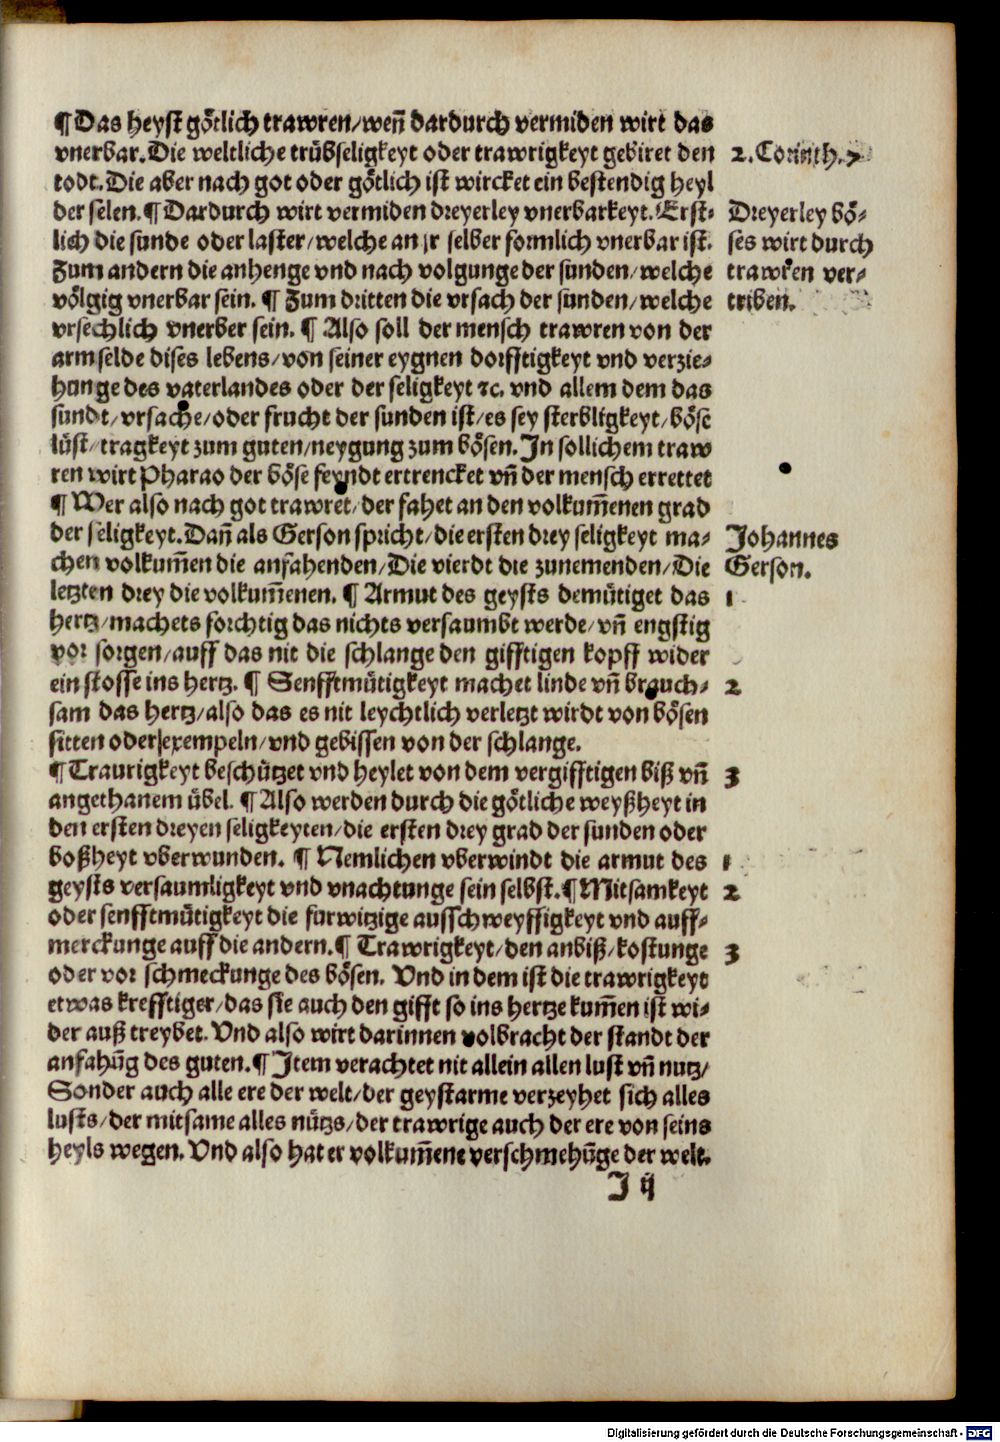 ¶ Das heyst götlich trawren/ weñ dardurch vermiden wirt das
vnerbar. Die weltliche trübseligkeyt oder trawrigkeyt gebiret den
todt. Die aber nach got oder götlich ist wircket ein bestendig heyl
der selen. ¶ Dardurch wirt vermiden dreyerley vnerbarkeyt. Erst-
lich die sunde oder laster/ welche an jr selber formlich vnerbar ist.
Zum andern die anhenge vnd nach volgunge der sunden/ welche
völgig vnerbar sein. ¶ Zum dritten die vrsach der sunden/ welche
vrsechlich vnerber sein. ¶ Also soll der mensch trawren von der
armselde dises lebens/ von seiner eygnen dorfftigkeyt vnd verzie-
hunge des vaterlandes oder der seligkeyt ⁊c. vnd allem dem das
sundt/ vrsache/ oder frucht der sunden ist/ es sey sterbligkeyt/ böse
lüst/ tragkeyt zum guten/ neygung zum bösen. In sollichem traw
ren wirt Pharao der böse feyndt ertrencket vñ der mensch errettet
¶ Wer also nach got trawret/ der fahet an den volkum̃enen grad
der seligkeyt. Dañ als Gerson spricht/ die ersten drey seligkeyt ma-
chen volkum̃en die anfahenden/ Die vierdt die zunemenden/ Die
letzten drey die volkum̃enen. ¶ Armut des geysts demütiget das
hertz/ machets forchtig das nichts versaumbt werde/ vñ engstig
vor sorgen/ auff das nit die schlange den gifftigen kopff wider
ein stosse ins hertz. ¶ Senfftmütigkeyt machet linde vñ brauch-
sam das hertz/ also das es nit leychtlich verletzt wirdt von bösen
sitten oder exempeln/ vnd gebissen von der schlange.
¶ Traurigkeyt beschützet vnd heylet von dem vergifftigen biß vñ
angethanem übel. ¶ Also werden durch die götliche weyßheyt in
den ersten dreyen seligkeyten/ die ersten drey grad der sunden oder
boßheyt vberwunden. ¶ Nemlichen vberwindt die armut des
geysts versaumligkeyt vnd vnachtunge sein selbst. ¶ Mitsamkeyt
oder senfftmütigkeyt die furwitzige ausschweyffigkeyt vnd auff-
merckunge auff die andern. ¶ Trawrigkeyt/ den anbiß/ kostunge
oder vor schmeckunge des bösen. Vnd in dem ist die trawrigkeyt
etwas krefftiger/ das sie auch den gifft so ins hertze kum̃en ist wi-
der auß treybet. Vnd also wirt darinnen volbracht der standt der
anfahũg des guten. ¶ Item verachtet nit allein allen lust vñ nutz/
Sonder auch alle ere der welt/ der geystarme verzeyhet sich alles
lusts/ der mitsame alles nützs/ der trawrige auch der ere von seins
heyls wegen. Vnd also hat er volkum̃ene verschmehũge der welt.
I ij
2. Corinth. 7
Dreyerley bö-
ses wirt durch
trawren ver-
triben.
Johannes
Gerson.
1
2
3
1
2
3
Digitalisierung gefördert durch die Deutsche Forschungsgemeinschaft - DFG